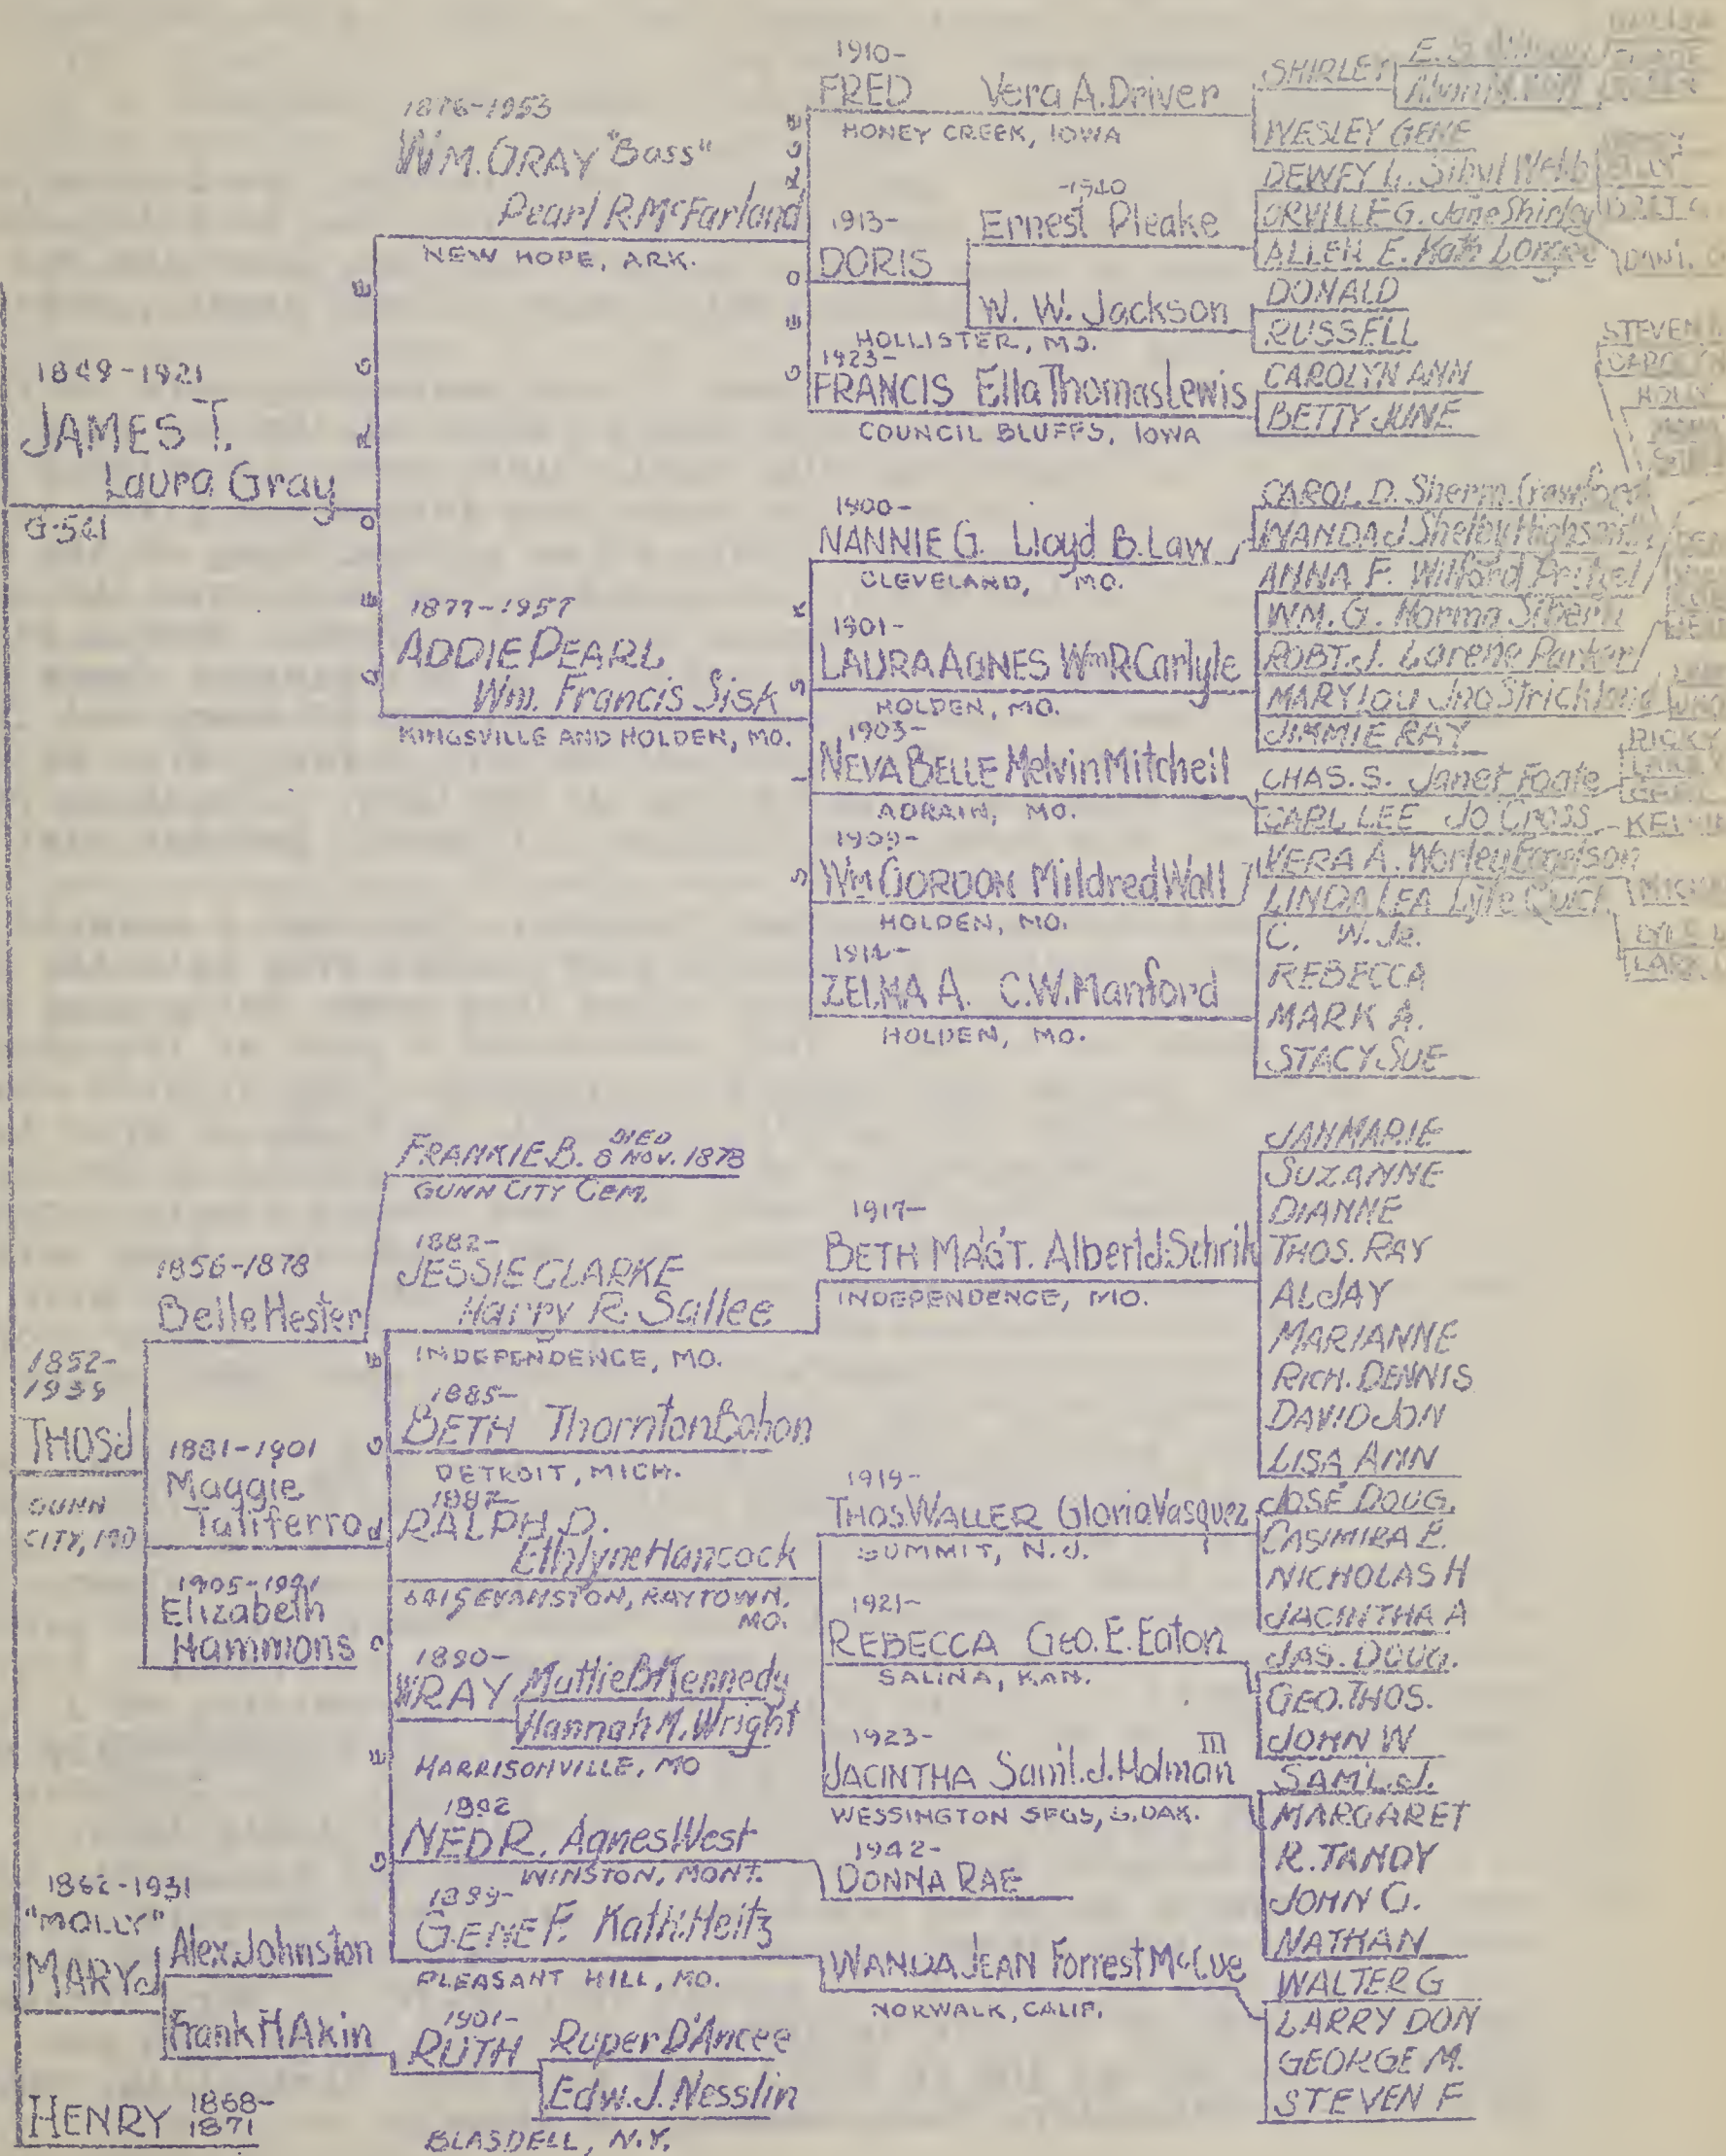 1849-1921
JAMES T.
Laura Gray
G-541
GEORGE
1876-1953
WM. GRAY "Boss"
Pearl R. McFarland
NEW HOPE, ARK.
1877-1957
ADDIE PEARL
Wm. Francis Sisk
KINGSVILLE AND HOLDEN, MO.
GEORGE
1910-
FRED Vera A. Driver
HONEY CREEK, IOWA
1913-
DORIS
-1940
Ernest Pleake
W. W. Jackson
HOLLISTER, MO.
1923-
FRANCIS Ella Thomas Lewis
COUNCIL BLUFFS, IOWA
SISK
1900-
NANNIE G. Lloyd B. Law
CLEVELAND, MO.
1901-
LAURA AGNES Wm R Carlyle
HOLDEN, MO.
1903-
NEVA BELLE Melvin Mitchell
ADRAIN, MO.
1909-
Wm GORDON Mildred Wall
HOLDEN, MO.
ZELMA A. C.W. Manford
HOLDEN, MO.
SHIRLEY
WESLEY GENE
DEWEY L. Sibyl Webb
ORVILLE G. Jane Shirley
ALLEN E. Kath
DONALD
RUSSELL
CAROLYN ANN
BETTY JUNE
CAROL D. Sherm. Crawford
WANDA J Shelby
ANNA F. Wilford
WM. G. Norma
ROBT. J. Lorene Parker
MARY LOU Jno Strickland
JIMMIE RAY
CHAS. S. Janet
CARL LEE Jo Cross
VERA A. Worley
LINDA LEA Lyle
C. W. Jr.
REBECCA
MARK A.
STACY SUE
STEVEN
RICKY
1852-
THOS J
GUNN
CITY, MO
1856-1878
Belle Hester
1881-1901
Maggie
Taliferro
Elizabeth
Hammons
FRANKIE B. DIED 8 NOV. 1878
GUNN CITY CEM.
GEORGE
1882-
JESSIE CLARKE
Harry R. Sallee
INDEPENDENCE, MO.
1885-
BETH Thornton Bohon
DETROIT, MICH.
1887-
RALPH D.
Ethlyne Hancock
6415 EVANSTON, RAYTOWN.
MO.
1890-
WRAY Mattie B Kennedy
Hannah M. Wright
HARRISONVILLE, MO
1892
NED R. Agnes West
WINSTON, MONT.
1899-
GENE F. Kath. Heitz
PLEASANT HILL, MO.
1917-
BETH MAG'T. Albert J. Schrik
INDEPENDENCE, MO.
1919-
THOS. WALLER Gloria Vasquez
SUMMIT, N.J.
1921-
REBECCA GEO. E. Eaton
SALINA, KAN.
1923-
JACINTHA Sam'l. J. Holman III
WESSINGTON SPGS, S. DAK.
1942-
DONNA RAE
WANDA JEAN Forrest McCue
NORWALK, CALIF.
JAN MARIE
SUZANNE
DIANNE
THOS. RAY
AL JAY
MARIANNE
RICH. DENNIS
DAVID JON
LISA ANN
JOSÉ DOUG.
CASIMIRA E.
NICHOLAS H
JACINTHA A
JAS. DOUG.
GEO. THOS.
JOHN W
SAM'L. J.
MARGARET
R. TANDY
JOHN G.
NATHAN
WALTER G
LARRY DON
GEORGE M.
STEVEN F
1862-1931
"MOLLY"
MARY J
Alex Johnston
Frank H Akin
1901-
RUTH Ruper D'Ancee
Edw. J. Nesslin
BLASDELL, N.Y.
HENRY 1868-
1871